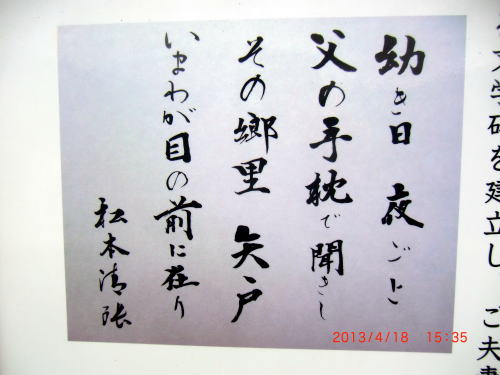 文学碑を建立し ご夫妻
幼き日 夜ごと
父の手枕で聞きし
その郷里 矢戸
いまわが目の前に在り
松本清張
2013/4/18 15:35